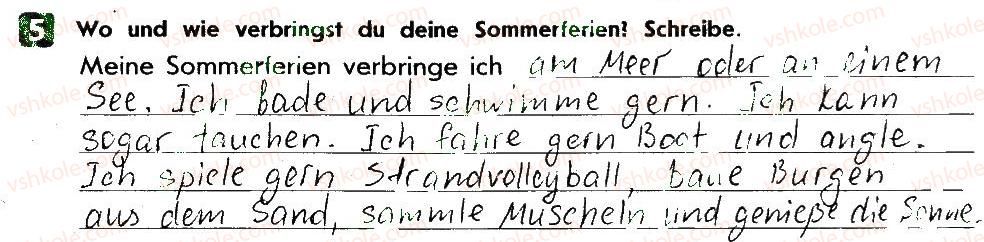 5 Wo und wie verbringst du deine Sommerferien? Schreibe.
Meine Sommerferien verbringe ich am Meer oder an einem
See. Ich bade und schwimme gern. Ich kann
sogar tauchen. Ich fahre gern Boot und angle.
Ich spiele gern Strandvolleyball, baue Burgen
aus dem Sand, sammle Muscheln und genieße die Sonne.